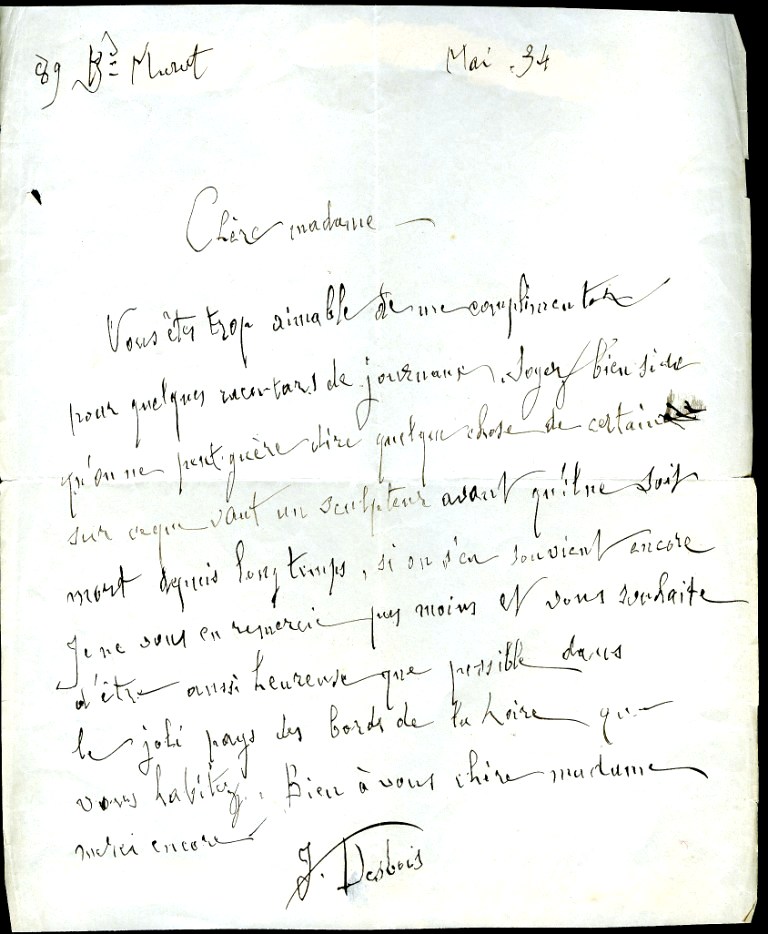 89 Bd Murat Mai 34
Chère madame —
Vous êtes trop aimable de me complimenter
pour quelques racontars de journaux. Soyez bien sûre
qu'on ne peut guère dire quelque chose de certain
sur ce que vaut un sculpteur avant qu'il ne soit
mort depuis longtemps, si on s'en souvient encore
Je ne vous en remercie pas moins et vous souhaite
d'être aussi heureuse que possible dans
le joli pays des bords de la Loire que
vous habitez. Bien à vous chère madame
merci encore
J. Desbois